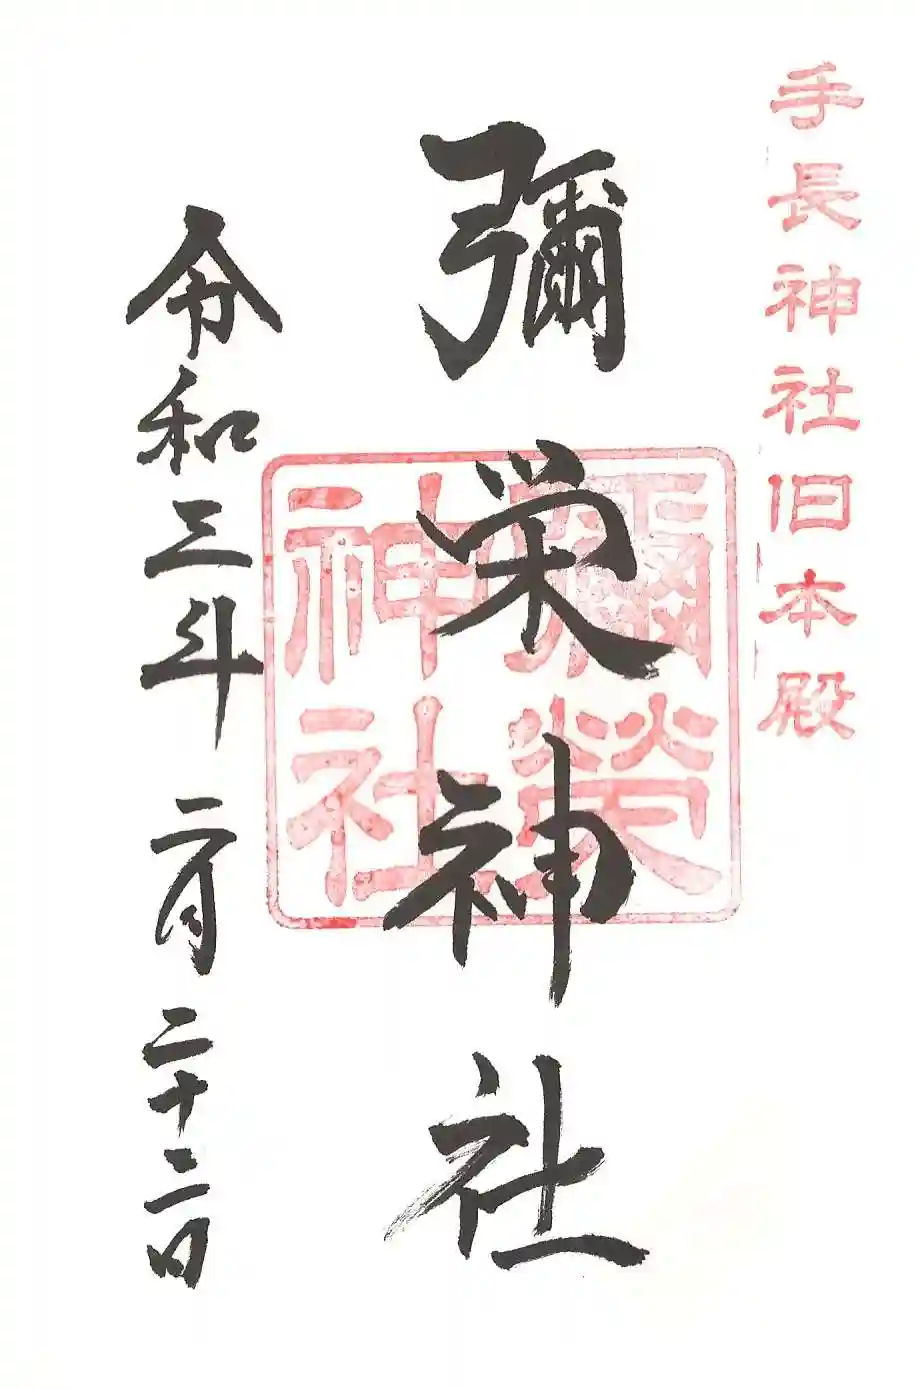 手長神社旧本殿
彌栄神社
彌榮
神社
令和三年二月二十二日